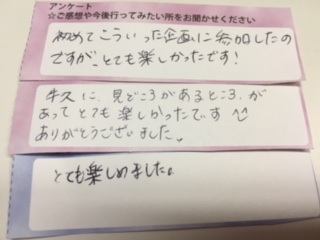 アンケート
☆ご感想や今後行ってみたい所をお聞かせください
初めてこういった企画に参加したの
ですが、とても楽しかったです!
牛久に、見どころがあるところ、が
あってとても楽しかったです
ありがとうございました。
とても楽しめました。